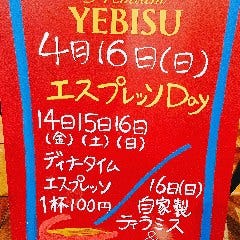 Premium
YEBISU
4日16日(日)
エスプレッソDay
14日15日16日
(金)(土)(日)
ディナータイム
エスプレッソ
1杯100円
16日(日)
自家製
ティラミス